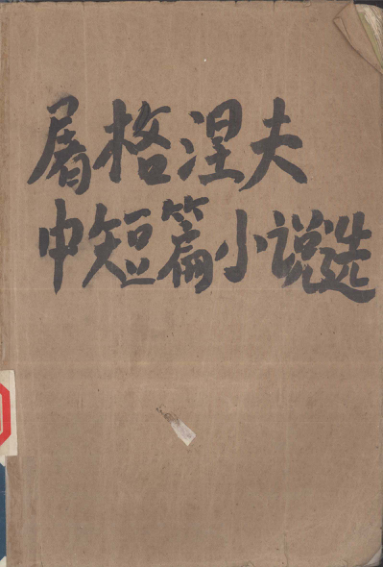 屠格涅夫
中短篇小说选